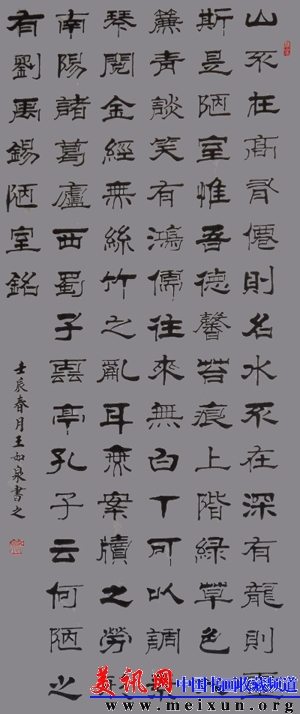 山不在高有僊則名水不在深有龍則
斯是陋室惟吾德馨苔痕上階緑草色
簾青談笑有鴻儒往來無白丁可以調素
琴閱金經無絲竹之亂耳無案牘之勞
南陽諸葛廬西蜀子雲亭孔子云何陋之
有劉禹錫陋室銘
壬辰春月王如泉書之
美讯网 中国书画收藏频道
www.meixun.org